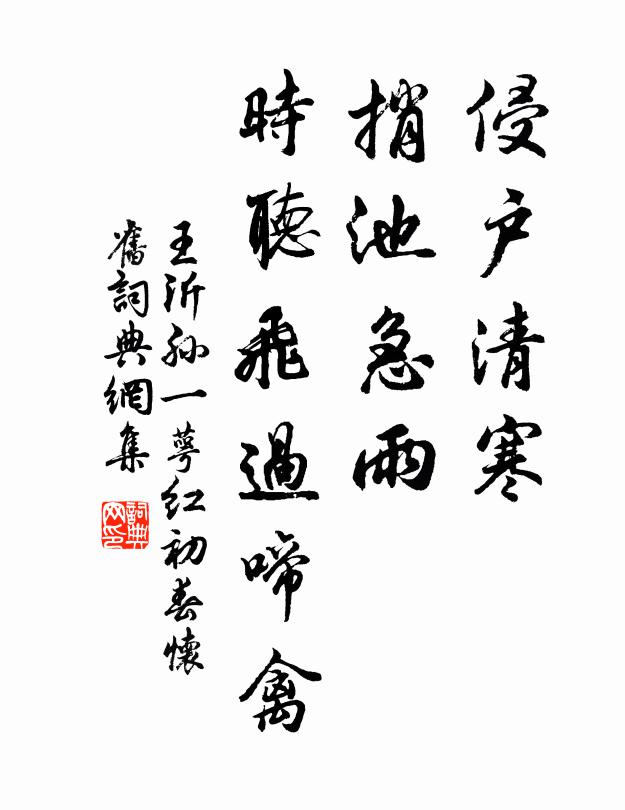 侵户清寒
捎池急雨
時聽飛過啼禽
王沂孫一萼紅初春懷
舊詞典網集
詞典
网印